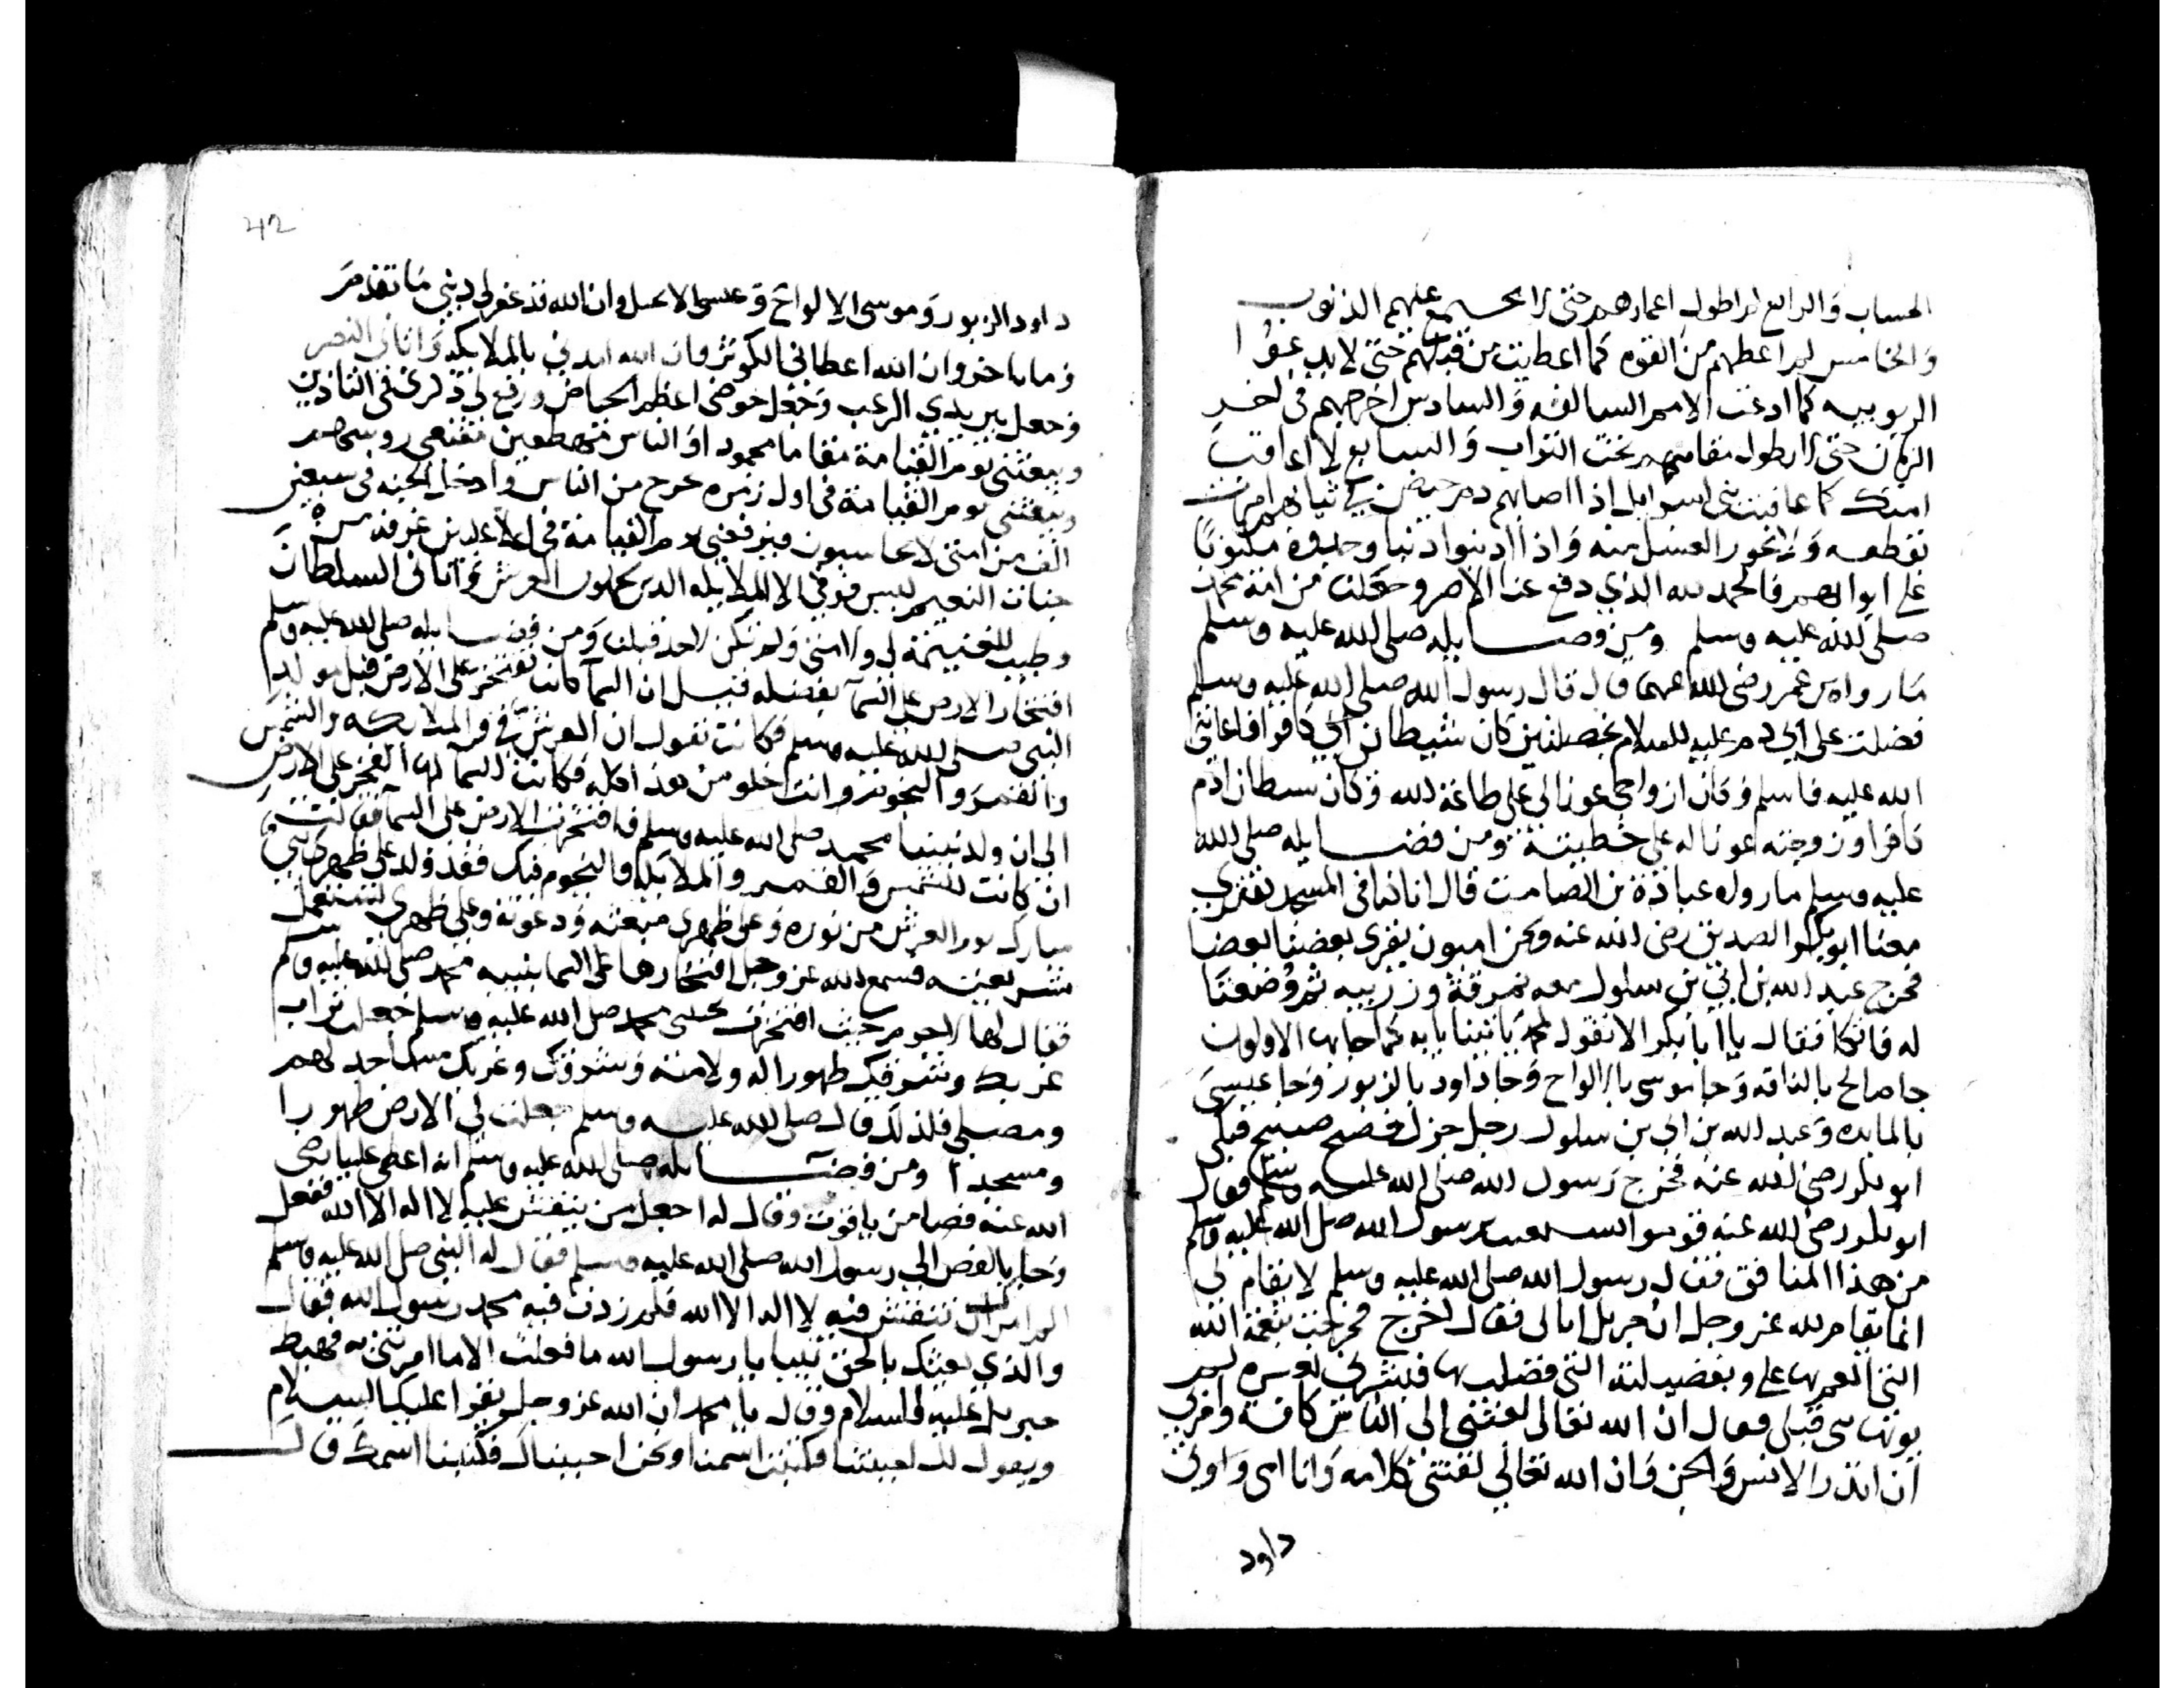 الحساب والرابع لم اطول اعمارهم حتى لا تجتمع عليهم الذنوب
والخامس لم اعطهم من القوه كما اعطيت من قبلهم حتى لا يدعوا
الربوبيه كما ادعت الامم السالفه والسادس اخرجهم في اخر
الزمان حتى لا يطول مقامهم تحت التراب والسابع لا اعاقب
امتك كما عاقبت بني اسرايل اذا اصابهم دم حيض في ثيابهم امرت
بقطعه ولا يجوز الغسل منه واذا اذنبوا ذنبا وجدوه مكتوبا
على ابوابهم فالحمد لله الذي دفع عنا الاصر وجعلنا من امة محمد
صلى الله عليه وسلم ومن فضايله صلى الله عليه وسلم
ما رواه بن عمر رضي الله عنهما قال قال رسول الله صلى الله عليه وسلم
فضلت على ادم عليه السلام بخصلتين كان شيطاني كافرا فاعانني
الله عليه فاسلم وكان ازواجي عونا لي على طاعة الله وكان شيطان ادم
كافرا وزوجته عونا له على خطيئته ومن فضايله صلى الله
عليه وسلم ما رواه عبادة بن الصامت قال انا كنا في المسجد نقتري
معنا ابو بكر الصديق رضي الله عنه ونحن اميون يقري بعضنا بعضا
فخرج عبد الله بن ابي بن سلول معه نمرقة وزربيه ثم وضعتا
له فاتكا فقال يا ابا بكر الا تقول لمحمد ياتينا بايه كما جا بها الاولون
جا صالح بالناقه وجا موسى بالالواح وجا داود بالزبور وجا عيسى
بالمايده وعبد الله بن ابي بن سلول رجل جزل فصيح صبيح فبكى
ابو بكر رضي الله عنه فخرج رسول الله صلى الله عليه وسلم فقال
ابو بكر رضي الله عنه قوموا نستغيث برسول الله صلى الله عليه وسلم
من هذا المنافق فقال رسول الله صلى الله عليه وسلم لا يقام لي
انما يقام لله عز وجل ان جبريل اتاني فقال اخرج فحدث بنعمة الله
التي انعم بها علي وبفضيلته التي فضلت بها فبشرني بعشره لم
يوتها نبي قبلي فقال ان الله تعالى بعثني الى الناس كافة وامرني
ان انذر الانس والجن وان الله تعالى لقنني كلامه وانا امي واوتي
داود
42
داود الزبور وموسى الالواح وعيسى الانجيل وان الله قد غفر لي ذنبي ما تقدم
وما تاخر وان الله اعطاني الكوثر وان الله امدني بالملايكه واتاني النصر
وجعل بين يدي الرعب وجعل حوضي اعظم الحياض ورفع لي ذكري في التاذين
ويبعثني يوم القيامة مقاما محمودا والناس مهطعين مقنعي روسهم
ويبعثني يوم القيامة في اول زمره تخرج من الناس وادخل الجنه في سبعين
الف من امتي لا يحاسبون فيرفعني يوم القيامة في اعلا غرفه من
جنات النعيم ليس فوقي الا الملايكه الذين يحملون العرش واتاني السلطان
وطيب الغنيمة لي ولامتي ولم تكن لاحد قبلنا ومن فضايله صلى الله عليه وسلم
افتخار الارض على السما بفضله قيل ان السما كانت تفتخر على الارض قبل مولد
النبي صلى الله عليه وسلم فكانت تقول ان العرش في والملايكه والشمس
والقمر والنجوم وانت خلو من هذا كله فكانت السما لها الفخر على الارض
الى ان ولد نبينا محمد صلى الله عليه وسلم فافتخرت الارض على السما فقالت
ان كانت الشمس والقمر والملايكه والنجوم فيك فقد ولد على ظهري نبي
مبارك نور العرش من نوره وعلى ظهري مبعثه ودعوته وعلى ظهري تستعمل
شريعته فسمع الله عز وجل افتخارها على السما بنبيه محمد صلى الله عليه وسلم
فقال لها لا جرم حيث افتخرت بحبيبي محمد صلى الله عليه وسلم جعلت تراب
غربك وشرقك طهورا له ولامته وشرقك وغربك مساجد لهم
ومصلى فلذلك قال صلى الله عليه وسلم جعلت لي الارض طهورا
ومسجدا ومن فضايله صلى الله عليه وسلم انه اعطى عليا رضي
الله عنه فصا من ياقوت وقال له اجعل من ينقش عليه لا اله الا الله ففعل
وجا بالفص الى رسول الله صلى الله عليه وسلم فقال له النبي صلى الله عليه وسلم
الم امرك ان تنقش فيه لا اله الا الله فلم زدت فيه محمد رسول الله فقال
والذي بعثك بالحق نبيا يا رسول الله ما فعلت الا ما امرتني به فهبط
جبريل عليه السلام وقال يا محمد ان الله عز وجل يقرا عليك السلام
ويقول لك احببتنا فكتبت اسمنا ونحن احببناك فكتبنا اسمك قال